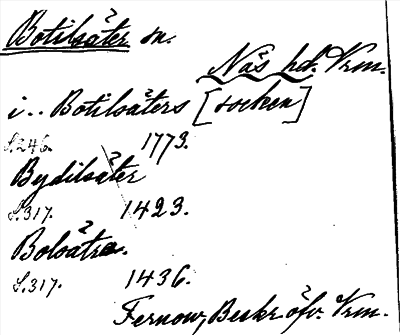 Botilsäter sn.
Näs hd. Vrm.
i .. Botilsäters [socken]
S.246. 1773.
Bydilsäter
S.317. 1423.
Bolsätre.
S.317. 1436.
Fernow, Beskr. öfv. Vrm.